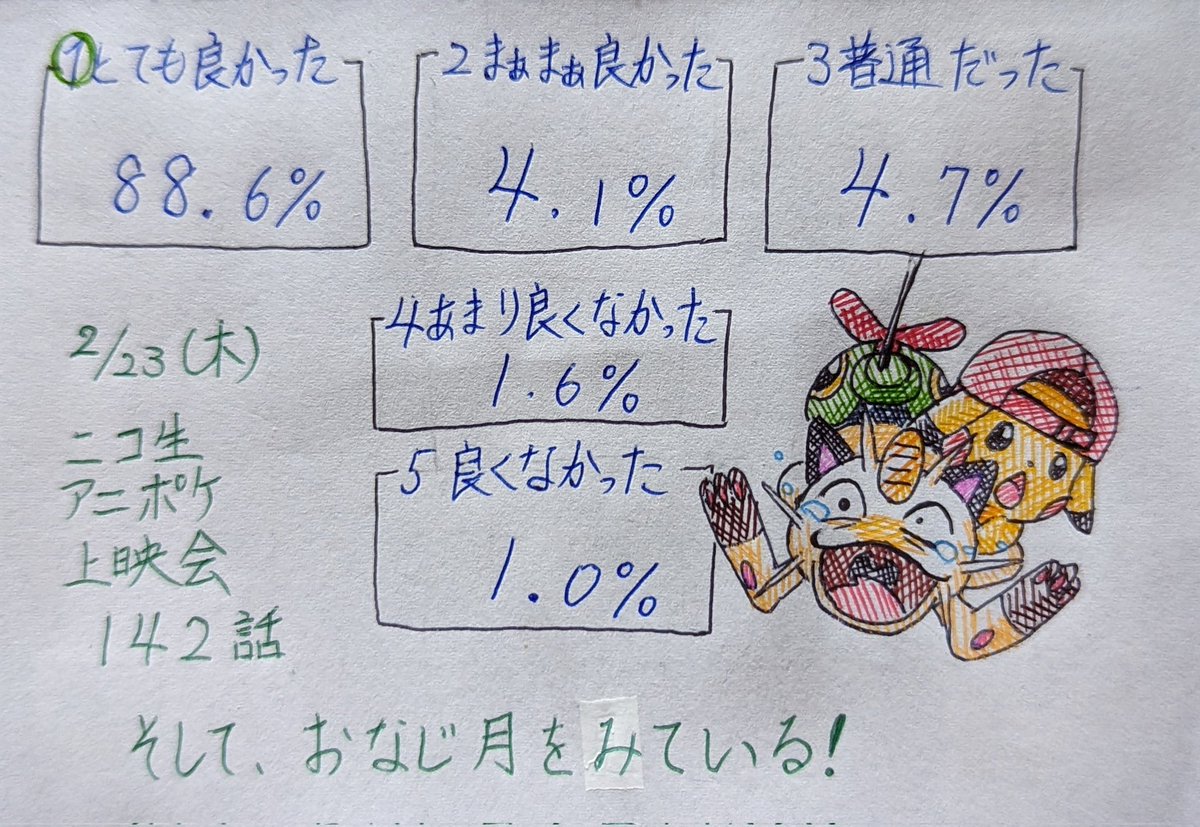 ①とても良かった
88.6%
2まぁまぁ良かった
4.1%
3普通だった
4.7%
4あまり良くなかった
1.6%
5良くなかった
1.0%
2/23(木)
ニコ生
アニポケ
上映会
142話
そして、おなじ月をみている!